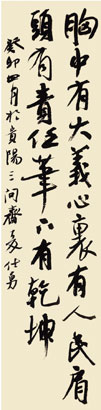 胸中有大義心裏有人民肩
頭有責任筆下有乾坤
癸卯四月於貴陽三問齋